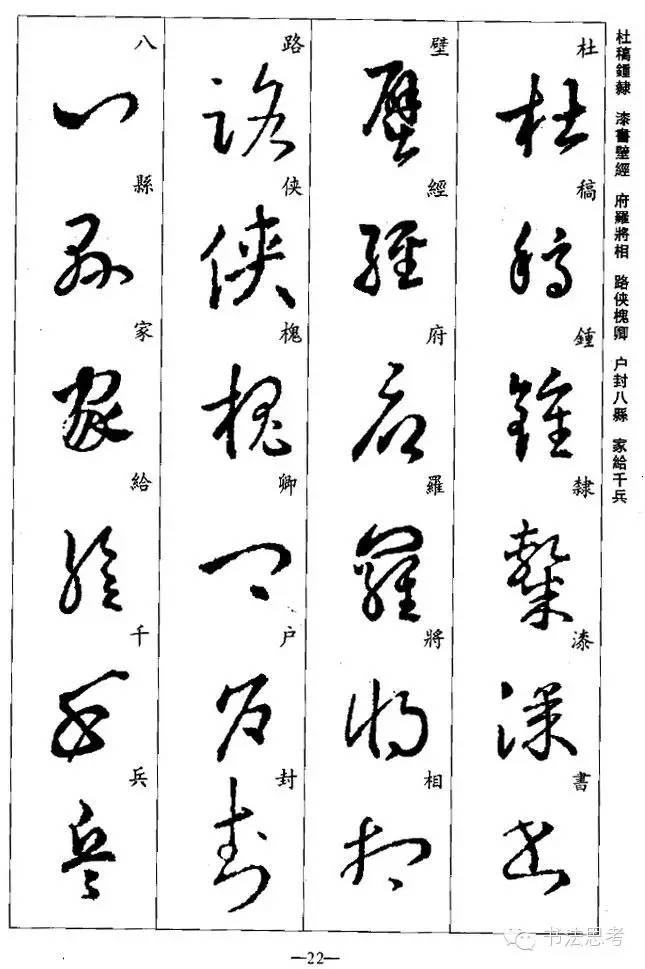 杜稿鍾隸　漆書壁經　府羅將相　路俠槐卿　户封八縣　家給千兵
杜稿鍾隸漆書
壁經府羅將相
路俠槐卿户封
八縣家給千兵
—22—
书法思考